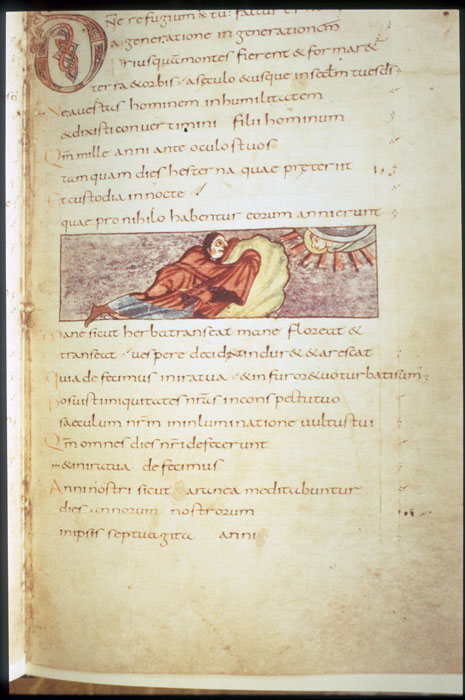 Dñe refugium & tu factus es nob
a generatione in generationem
Priusquam montes fierent & formar&
terra & orbis a seculo & usque in sectm tu es ds
Neavertas hominem in humilitatem
& dixisti convertimini filii hominum
Qm mille anni ante oculos tuos
tamquam dies hesterna quae preteriit
Et custodia in nocte
quae pro nihilo habentur eorum anni erunt
Mane sicut herba transeat mane floreat &
transeat vespere decidat indur& & arescat
Quia defecimus in ira tua & in furore tuo turbati sum
Posuisti iniquitates nras in conspectu tuo
saeculum nrm in inluminatione vultus tui
Qm omnes dies nri defecerunt
& in ira tua defecimus
Anni nostri sicut aranea meditabuntur
dies annorum nostrorum
in ipsis septuaginta anni